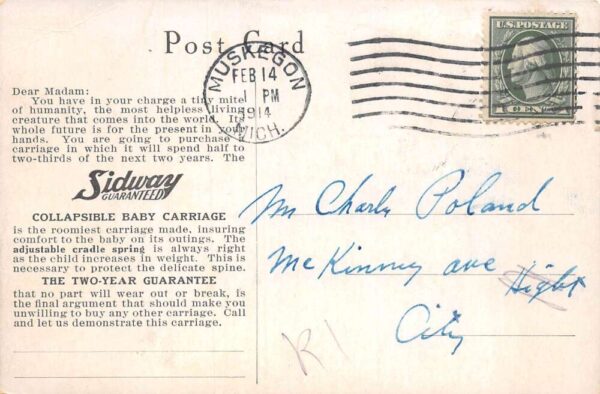 Post Card
U.S. POSTAGE
MUSKEGON
FEB 14
1 PM
1914
MICH.
Dear Madam:
You have in your charge a tiny mite
of humanity, the most helpless living
creature that comes into the world. Its
whole future is for the present in your
hands. You are going to purchase a
carriage in which it will spend half to
two-thirds of the next two years. The
Sidway
GUARANTEED
COLLAPSIBLE BABY CARRIAGE
is the roomiest carriage made, insuring
comfort to the baby on its outings. The
adjustable cradle spring is always right
as the child increases in weight. This is
necessary to protect the delicate spine.
THE TWO-YEAR GUARANTEE
that no part will wear out or break, is
the final argument that should make you
unwilling to buy any other carriage. Call
and let us demonstrate this carriage.
Poland
McKinney ave
City
R 1